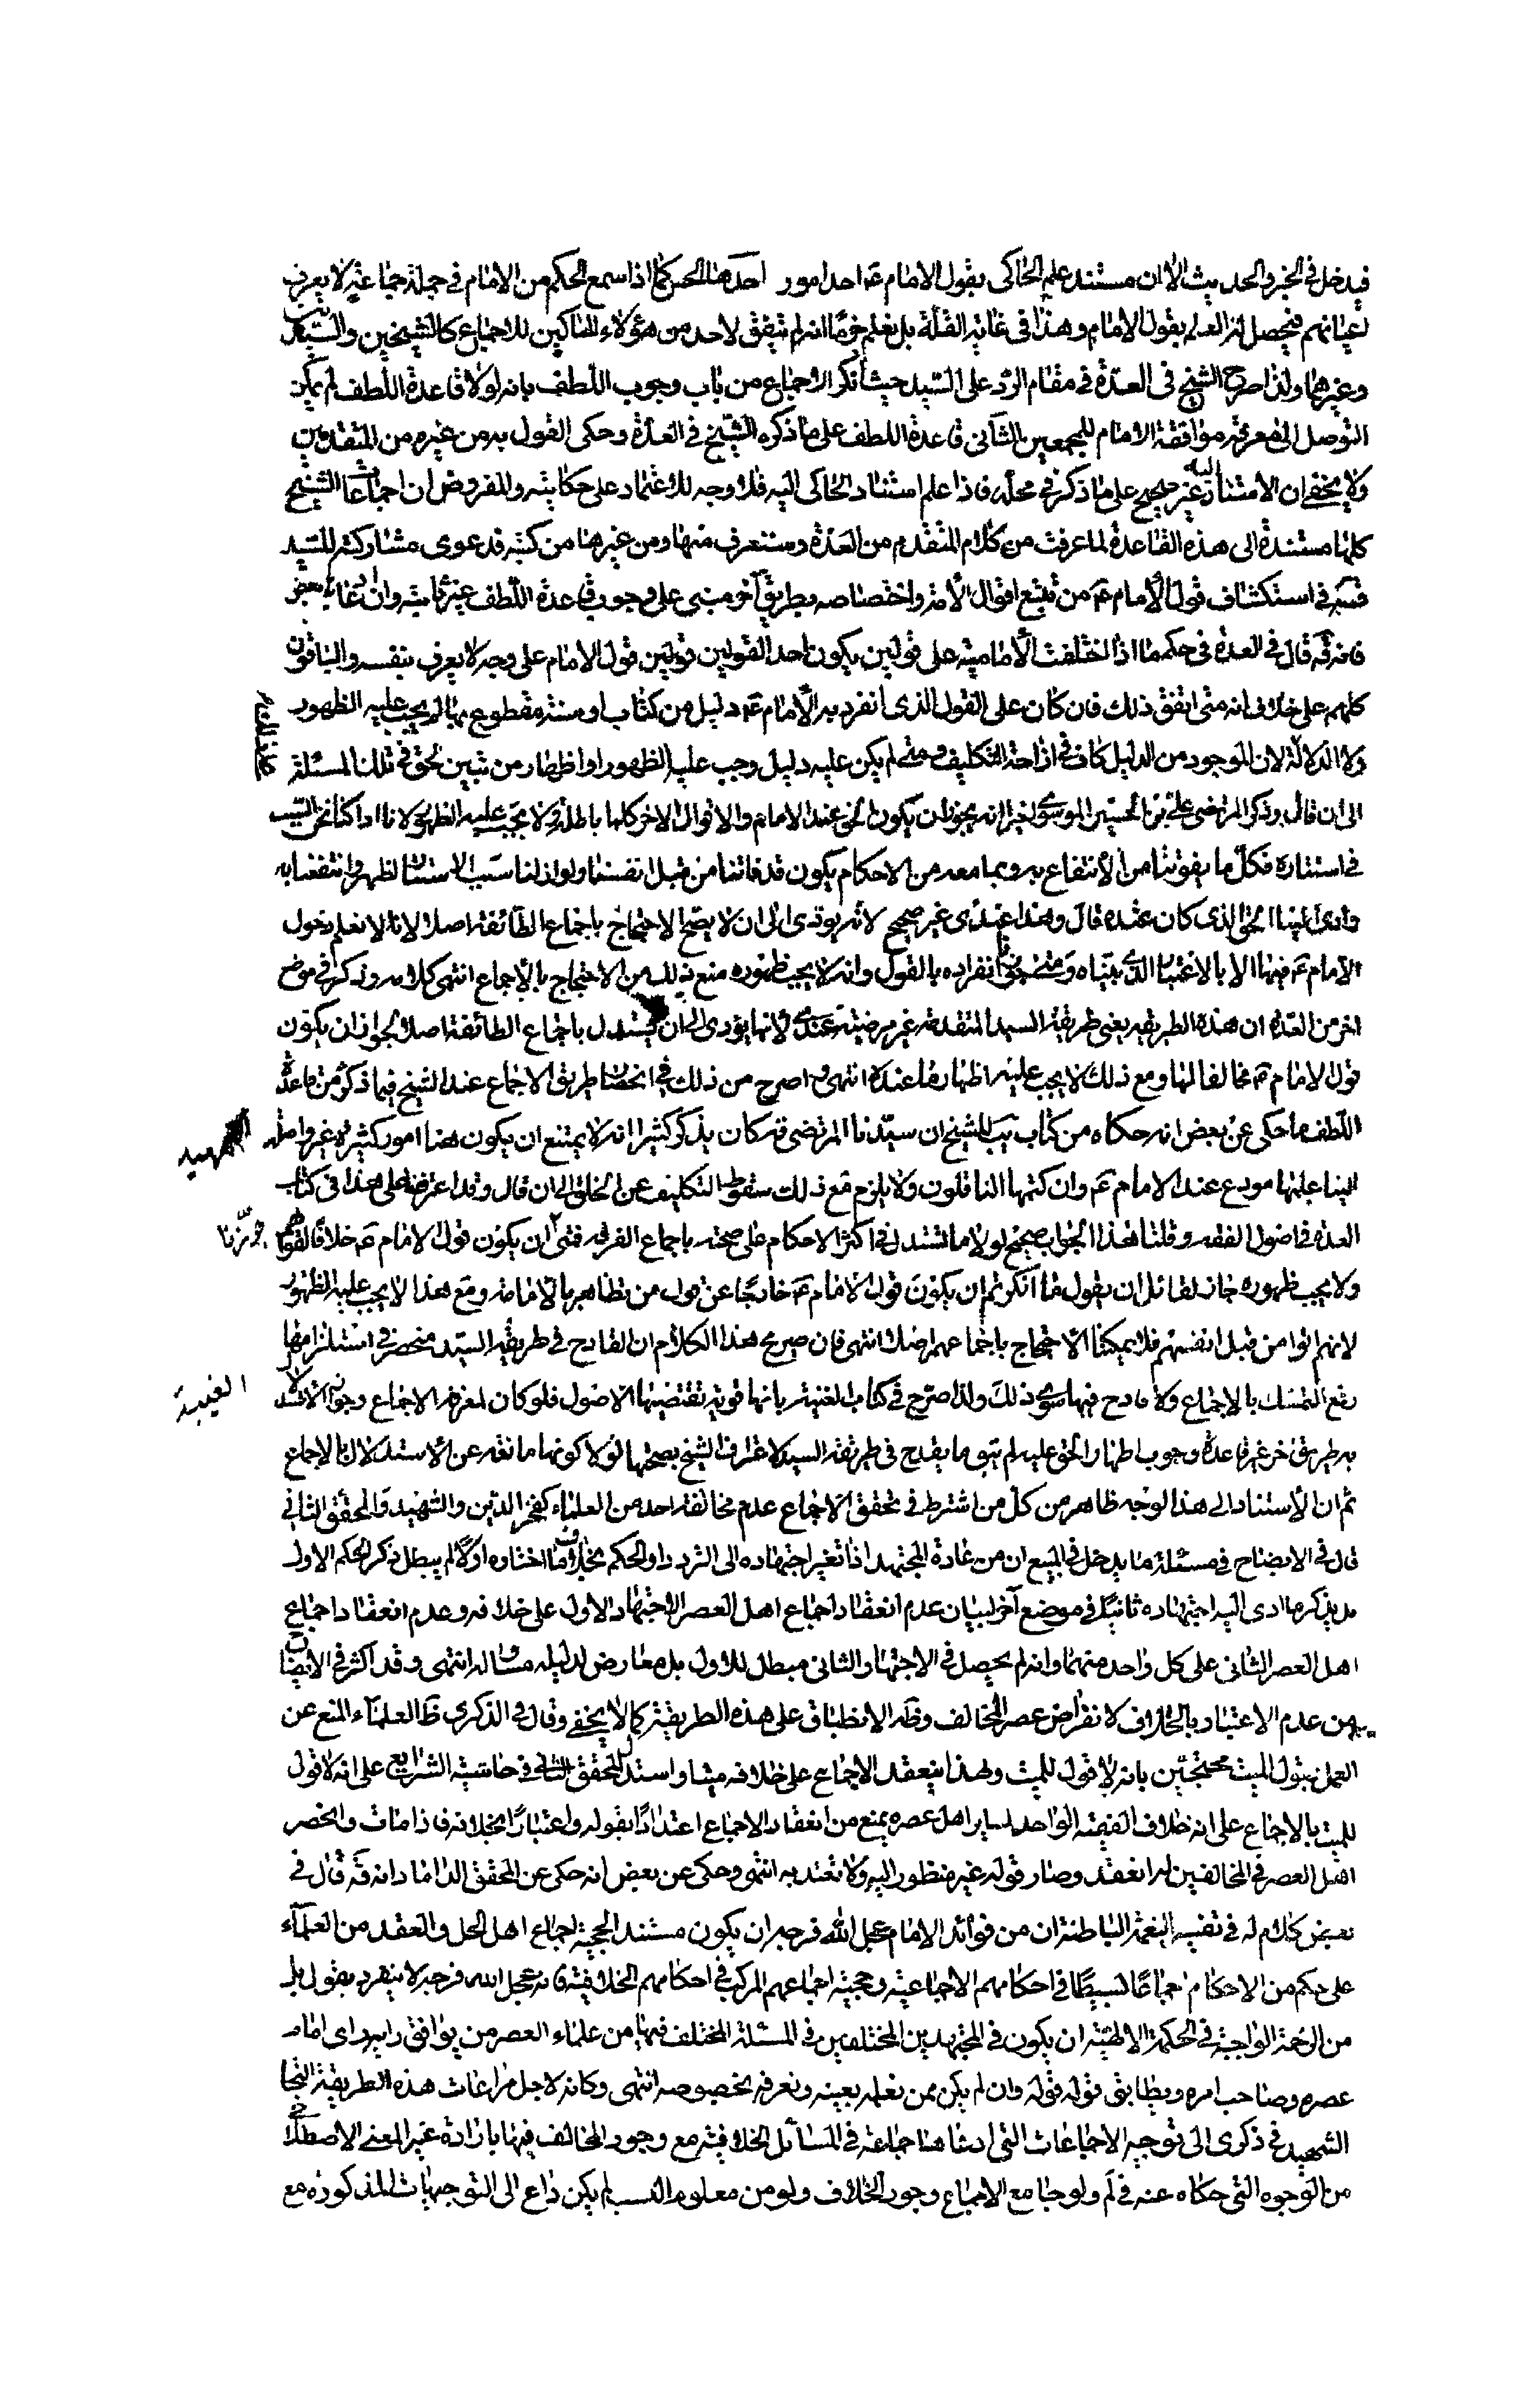 فيدخل في الخبر والحديث الا ان مستند علم الحاكى بقول الامام ع احد امور احدها الحس كما اذا سمع الحكم من الامام في جملة جماعة لا يعرف
اعيانهم فيحصل له العلم بقول الامام وهذا في غاية القلة بل نعلم جزما انه لم يتفق لاحد من هؤلاء الحاكين للاجماع كالشيخين والسيدين
وغيرهما ولذا صرح الشيخ في العدة في مقام الرد على السيد حيث انكر الاجماع من باب وجوب اللطف بانه لولا قاعدة اللطف لم يمكن
التوصل الى معرفة موافقة الامام للمجمعين الثاني قاعدة اللطف على ما ذكره الشيخ في العدة وحكى القول به من غيره من المتقدمين
ولا يخفى ان الاستناد اليه غير صحيح على ما ذكر في محله فاذا علم استناد الحاكى اليه فلا وجه للاعتماد على حكايته والمفروض ان اجماعات الشيخ
كلها مستندة الى هذه القاعدة لما عرفت من كلام المتقدم من العدة وستعرف منها ومن غيرها من كتبه فدعوى مشاركته للسيد
قده في استكشاف قول الامام ع من تتبع اقوال الامة واختصاصه بطريق آخر مبنى على وجوب قاعدة اللطف غير ثابتة وان ادعاه بعض
فانه قده قال في العدة في حكم ما اذا اختلفت الامامية على قولين يكون احد القولين قول الامام على وجه لا يعرف بنفسه والباقون
كلهم على خلافه انه متى اتفق ذلك فان كان على القول الذى انفرد به الامام ع دليل من كتاب او سنة مقطوع بها لم يجب عليه الظهور
ولا الدلالة لان الموجود من الدليل كاف في ازاحة التكليف ومتى لم يكن عليه دليل وجب عليه الظهور او اظهار من يبين الحق في تلك المسئلة
الى ان قال وذكر المرتضى على بن الحسين الموسوي اخيرا انه يجوز ان يكون الحق عند الامام والاقوال الاخر كلها باطلة ولا يجب عليه الظهور لانا اذا كنا نحن السبب
في استتاره فكل ما يفوتنا من الانتفاع به وبما معه من الاحكام يكون قد فاتنا من قبل انفسنا ولو ازلنا سبب الاستتار لظهر وانتفعنا به
وادى الينا الحق الذى كان عنده قال وهذا عندى غير صحيح لانه يؤدى الى ان لا يصح الاحتجاج باجماع الطائفة اصلا لانا لا نعلم دخول
الامام ع فيها الا بالاعتبار الذى بيناه ومتى جوزنا انفراده بالقول وانه لا يجب ظهوره منع ذلك من الاحتجاج بالاجماع انتهى كلامه وذكر في موضع
اخر من العدة ان هذه الطريقه يعنى طريقة السيد المتقدمة غير مرضيته عندى لانها يؤدى الى ان لا يستدل باجماع الطائفة اصلا لجواز ان يكون
قول الامام ع مخالفا لها ومع ذلك لا يجب عليه اظهار ما عنده انتهى واصرح من ذلك في انحصار طريق الاجماع عند الشيخ فيما ذكره من قاعدة
اللطف ما حكى عن بعض انه حكاه من كتاب يب للشيخ ان سيدنا المرتضى قده كان يذكر كثيرا انه لا يمتنع ان يكون هنا امور كثيرة غير واصلة
التمهيد
الينا علمها مودع عند الامام ع وان كتمها الناقلون ولا يلزم مع ذلك سقوط التكليف عن الخلق الى ان قال وقد اعترضنا على هذا في كتاب
العدة في اصول الفقه وقلنا هذا الجواب صحيح لولا ما نستدل في اكثر الاحكام على صحته باجماع الفرقه فمتى ان يكون قول الامام ع خلافا لقولهم
جوزنا
ولا يجب ظهوره جاز لقائل ان يقول ما انكرتم ان يكون قول الامام ع خارجا عن قول من تظاهر بالامامة ومع هذا لا يجب عليه الظهور
لانهم اتوا من قبل انفسهم فلا يمكننا الاحتجاج باجماعهم اصلا انتهى فان صريح هذا الكلام ان القادح في طريقه السيد منحصر في استلزامها
رفع التمسك بالاجماع ولا قادح فيها سوى ذلك ولذا صرح في كتاب الغيبة بانها قوية تقتضيها الاصول فلو كان لمعرفة الاجماع وجواز الاستدلال
الغيبة
به طريق اخر غير قاعدة وجوب اظهار الحق عليه لم يبق ما يقدح في طريقة السيد لاعتراف الشيخ بصحتها لولا كونها مانعة عن الاستدلال بالاجماع
ثم ان الاستناد الى هذا الوجه ظاهر من كل من اشترط في تحقق الاجماع عدم مخالفة احد من العلماء كفخر الدين والشهيد والمحقق الثاني
قال في الايضاح في مسئلة ما يدخل في المبيع ان من عادة المجتهد اذا تغير اجتهاده الى التردد او الحكم بخلاف ما اختاره اولا لم يبطل ذكر الحكم الاول
بل يذكر ما ادى اليه اجتهاده ثانيا في موضع آخر لبيان عدم انعقاد اجماع اهل العصر الاجتهاد الاول على خلافه وعدم انعقاد اجماع
اهل العصر الثاني على كل واحد منهما وانه لم يحصل في الاجتهاد الثاني مبطل للاول بل معارض لدليله مساو له انتهى وقد اكثر في الايضاح
من عدم الاعتبار بالخلاف لانقراض عصر المخالف وظه الانطباق على هذه الطريقة كما لا يخفى وقال في الذكرى ظ العلماء المنع عن
العمل بقول الميت محتجين بانه لا قول للميت ولهذا ينعقد الاجماع على خلافه ميتا واستدل المحقق الثاني في حاشية الشرايع على انه لا قول
للميت بالاجماع على انه خلاف الفقيه الواحد لساير اهل عصره يمنع من انعقاد الاجماع اعتدادا بقوله واعتبارا بخلافه فاذا مات وانحصر
اهل العصر في المخالفين له انعقد وصار قوله غير منظور اليه ولا نعتد به انتهى وحكى عن بعض انه حكى عن المحقق الداماد انه قده قال في
بعض كلام له في تفسير النعمة الباطنة ان من فوائد الامام عجل الله فرجه ان يكون مستند الحجية اجماع اهل الحل والعقد من العلماء
على حكم من الاحكام اجماعا بسيطا في احكامهم الاجماعية وحجية اجماعهم المركب في احكامهم الخلافية فانه عجل الله فرجه لا ينفرد بقول بل
من الرحمة الواجبة في الحكمة الالهية ان يكون في المجتهدين المختلفين في المسئلة المختلف فيها من علماء العصر من يوافق رايه راى امام
عصره وصاحب امره ويطابق قوله قوله وان لم يكن ممن نعلمه بعينه ونعرفه بخصوصه انتهى وكانه لاجل مراعات هذه الطريقة التجا
الشهيد في ذكرى الى توجيه الاجماعات التى ادعاها جماعة في المسائل الخلافية مع وجود المخالف فيها بارادة غير المعنى الاصطلاحى
من الوجوه التى حكاه عنه في لم ولو جامع الاجماع وجود الخلاف ولو من معلوم النسب لم يكن داع الى التوجيهات المذكوره مع